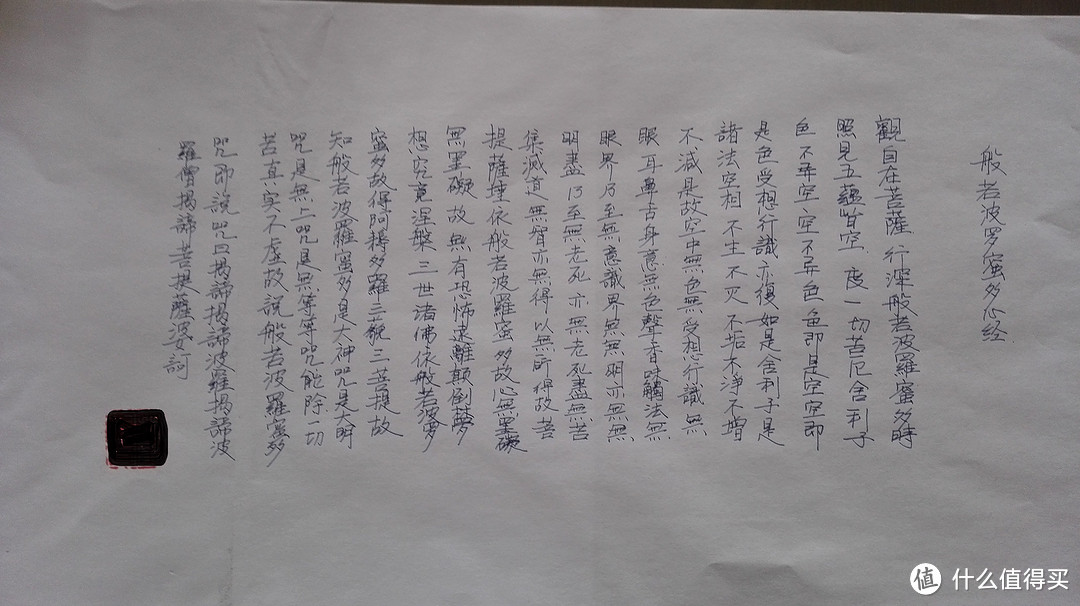 般若波罗蜜多心经
觀自在菩薩行深般若波羅蜜多時
照見五蘊皆空度一切苦厄舍利子
色不異空空不異色色即是空空即
是色受想行識亦復如是舍利子是
諸法空相不生不灭不垢不淨不增
不減是故空中無色無受想行識無
眼耳鼻舌身意無色聲香味觸法無
眼界乃至無意識界無無明亦無無
明盡乃至無老死亦無老死盡無苦
集滅道無智亦無得以無所得故菩
提薩埵依般若波羅蜜多故心無罣礙
無罣礙故無有恐怖遠離顛倒夢
想究竟涅槃三世諸佛依般若波羅
蜜多故得阿耨多羅三藐三菩提故
知般若波羅蜜多是大神咒是大明
咒是無上咒是無等等咒能除一切
苦真实不虛故說般若波羅蜜多
咒即說咒曰揭諦揭諦波羅揭諦波
羅僧揭諦菩提薩婆訶
值 什么值得买